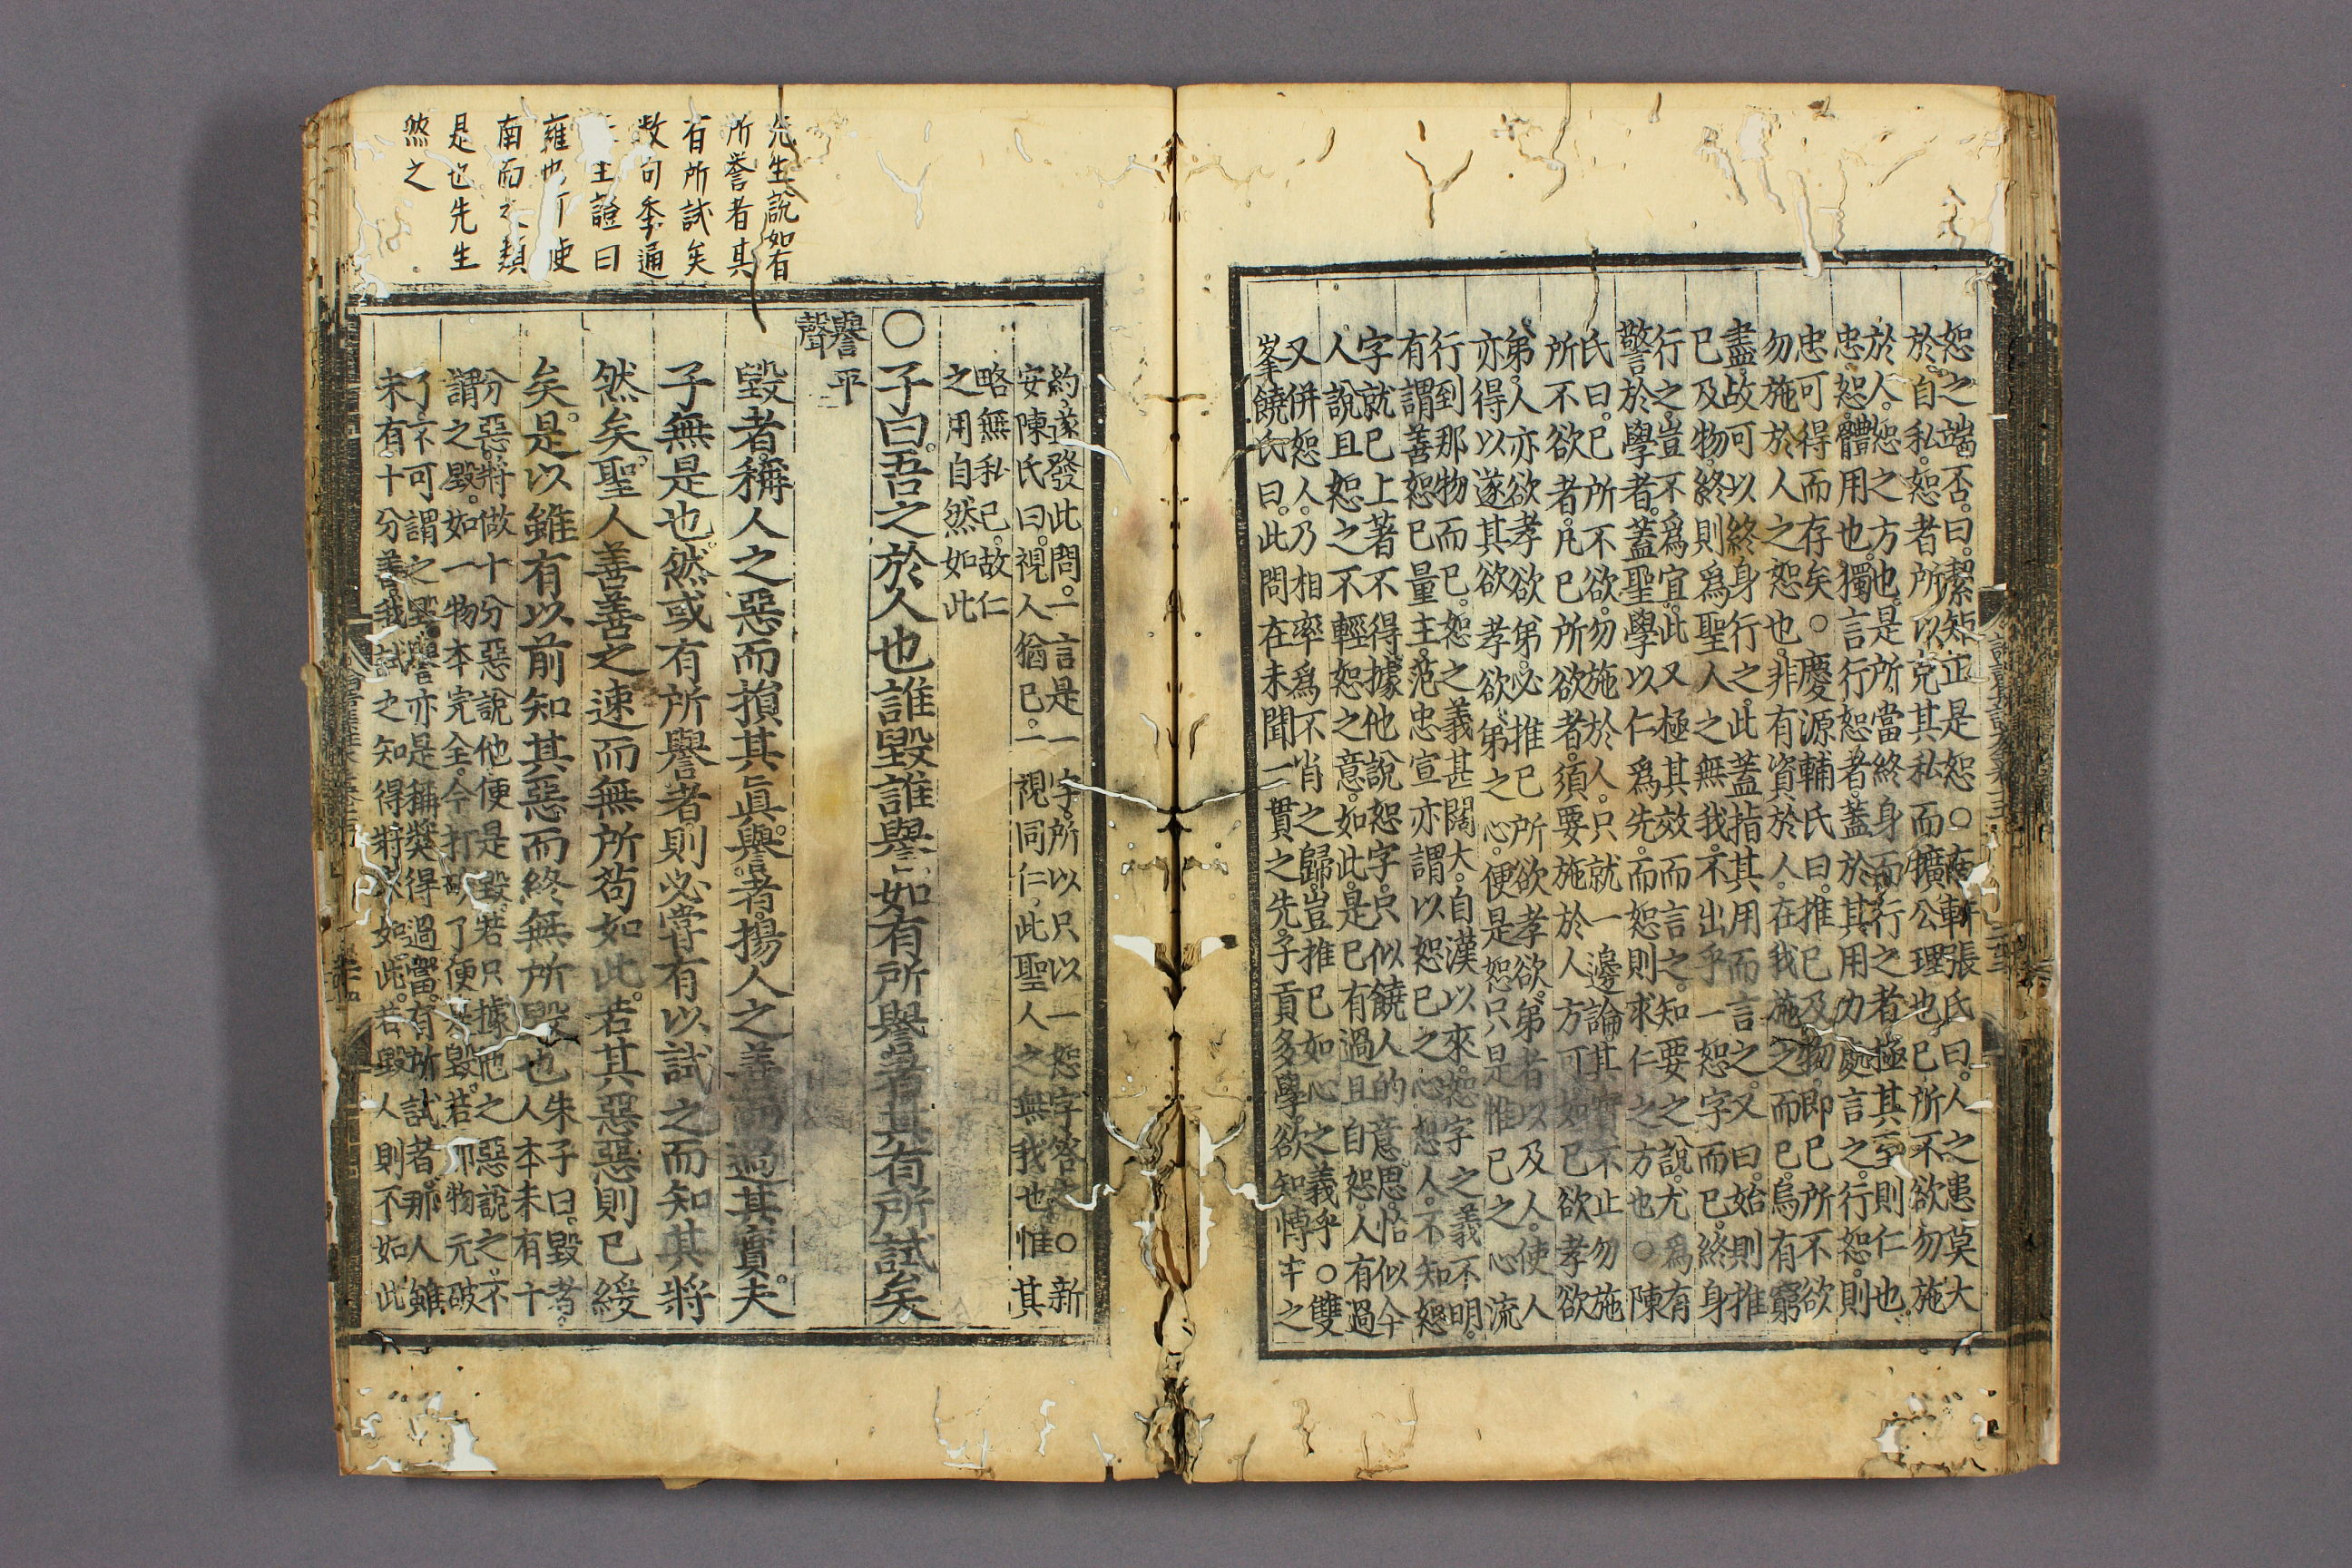 恕之端否曰絜矩正是恕○南軒張氏曰人之患莫大
於自私恕者所以克其私而擴公理也已所不欲勿施
於人恕之方也是所當終身而行之者極其至則仁也
忠恕體用也獨言行恕者蓋於其用力處言之行恕則
忠可得而存矣○慶源輔氏曰推已及物即已所不欲
勿施於人之恕也非有資於人在我施之而已烏有窮
盡故可以終身行之此蓋指其用而言之又曰始則推
已及物終則爲聖人之無我不出乎一恕字而已終身
行之豈不爲宜此又極其效而言之知要之說尤爲有
警於學者蓋聖學以仁爲先而恕則求仁之方也○陳
氏曰已所不欲勿施於人只就一邊論其實不止勿施
所不欲者凡已所欲者須要施於人方可如已欲孝欲
弟人亦欲孝欲弟必推已所欲孝欲弟者以及人使人
亦得以遂其欲孝欲弟之心便是恕只是惟已之心流
行到那物而已恕之義甚闊大自漢以來恕字之義不明
有謂善恕已量主范忠宣亦謂以恕已之心恕人不知恕
字就已上著不得據他說恕字只似饒人的意思恰似今
人說且恕之不輕恕之意如此是已有過且自恕人有過
又併恕人乃相率爲不肖之歸豈推已如心之義乎○雙
峯饒氏曰此問在未聞一貫之先子貢多學欲知博中之
約遂發此問一言是一字所以只以一恕字答之○新
安陳氏曰視人猶已一視同仁此聖人之無我也惟其
略無私已故仁
之用自然如此
○子曰吾之於人也誰毀誰譽如有所譽者其有所試矣
譽平
聲
毀者稱人之惡而損其眞譽者揚人之善而過其實夫
子無是也然或有所譽者則必嘗有以試之而知其將
然矣聖人善善之速而無所苟如此若其惡惡則已緩
矣是以雖有以前知其惡而終無所毀也
朱子曰毀者
人本未有十
分惡將做十分惡說他便是毀若只據他之惡說之不
謂之毀如一物本完全今打破了便是毀若那物元破
了不可謂之毀譽亦是稱獎得過當有所試者那人雖
未有十分善我試之知得將來如此若毀人則不如此
先生說如有
所譽者其
有所試矣
數句季通
主證曰
雍也可使
南面之類
是也先生
然之